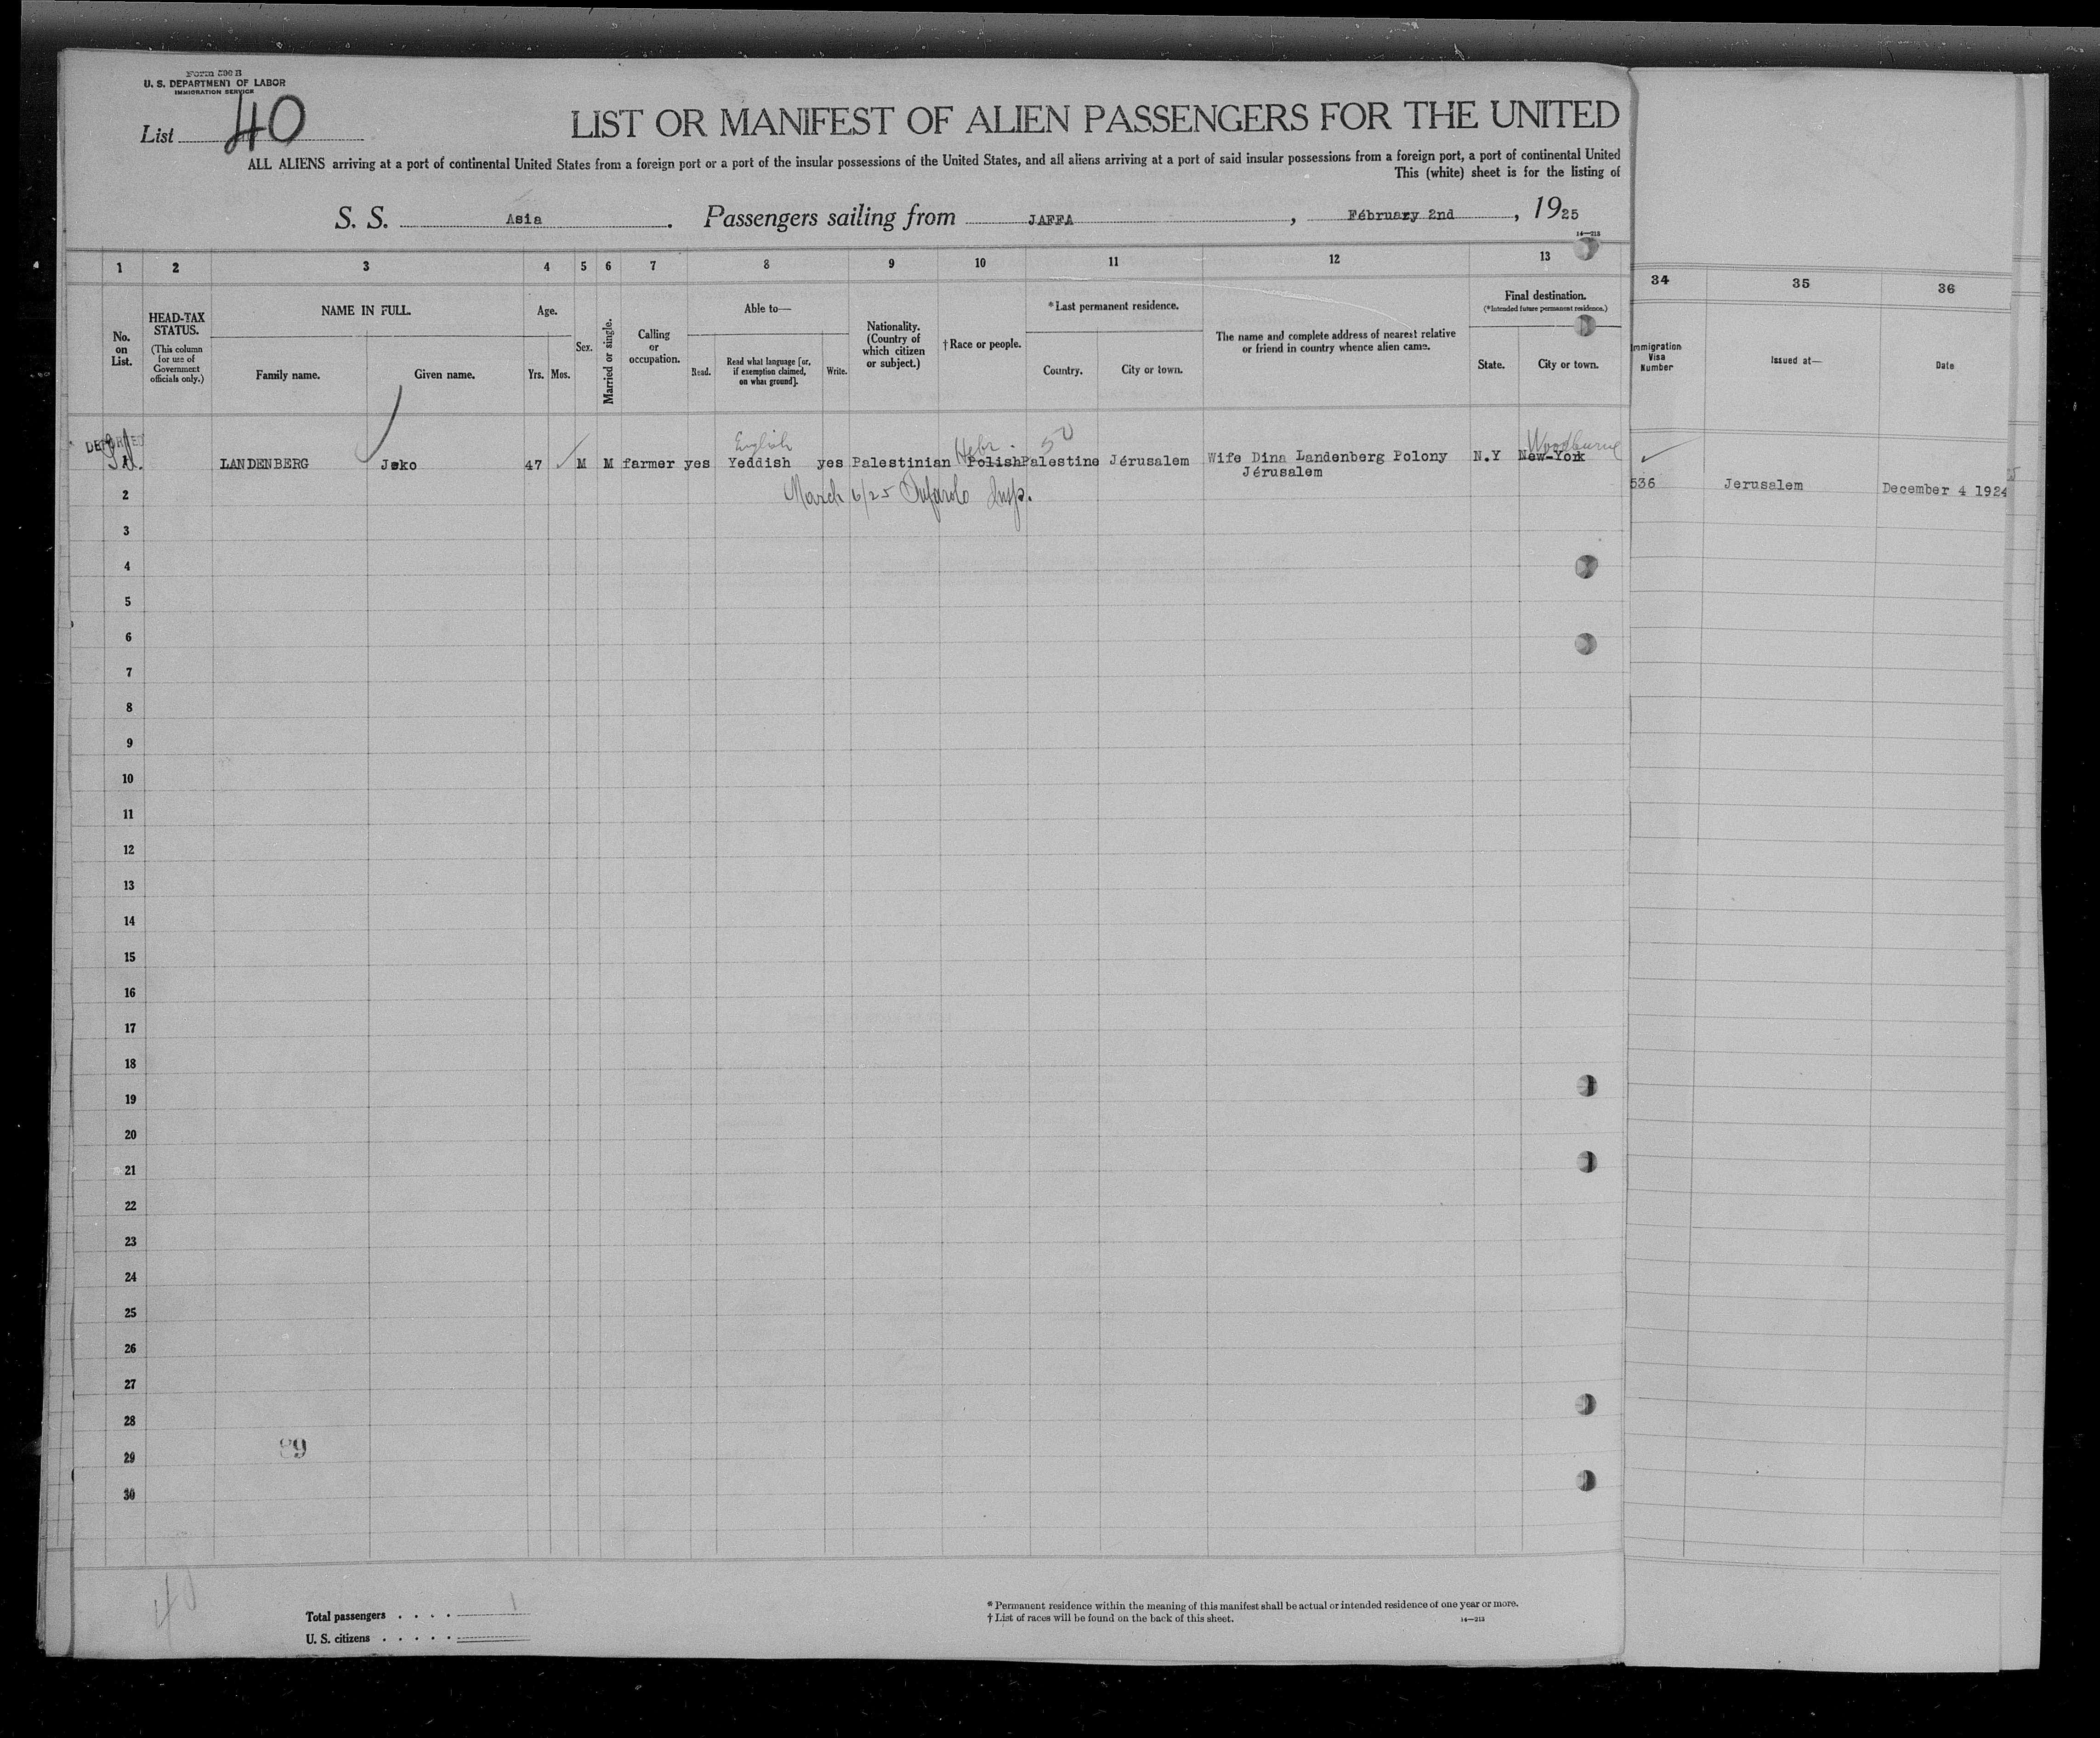 Form 500 B
U. S. DEPARTMENT OF LABOR
IMMIGRATION SERVICE
List 40
LIST OR MANIFEST OF ALIEN PASSENGERS FOR THE UNITED
ALL ALIENS arriving at a port of continental United States from a foreign port or a port of the insular possessions of the United States, and all aliens arriving at a port of said insular possessions from a foreign port, a port of continental United
This (white) sheet is for the listing of
S. S. Asia. Passengers sailing from JAFFA, Fébruary 2nd, 1925
14—213
1 2 3 4 5 6 7 8 9 10 11 12 13 34 35 36
No. on List.
HEAD-TAX STATUS.
(This column for use of Government officials only.)
NAME IN FULL.
Family name. Given name.
Age.
Yrs. Mos.
Sex.
Married or single.
Calling or occupation.
Able to—
Read. Read what language [or, if exemption claimed, on what ground]. Write.
Nationality. (Country of which citizen or subject.)
†Race or people.
*Last permanent residence.
Country. City or town.
The name and complete address of nearest relative or friend in country whence alien came.
Final destination.
(*Intended future permanent residence.)
State. City or town.
Immigration Visa Number
Issued at—
Date
English Hebr. 50 Woodburne
LANDENBERG Jsko 47 M M farmer yes Yeddish yes Palestinian Polish Palestine Jérusalem Wife Dina Landenberg Polony N.Y New-York
Jérusalem
536 Jerusalem December 4 1924
2 March 6/25 Insp.
3
4
5
6
7
8
9
10
11
12
13
14
15
16
17
18
19
20
21
22
23
24
25
26
27
28
89
29
30
40
Total passengers . . . . 1
U. S. citizens . . . . .
* Permanent residence within the meaning of this manifest shall be actual or intended residence of one year or more.
† List of races will be found on the back of this sheet.
14—213